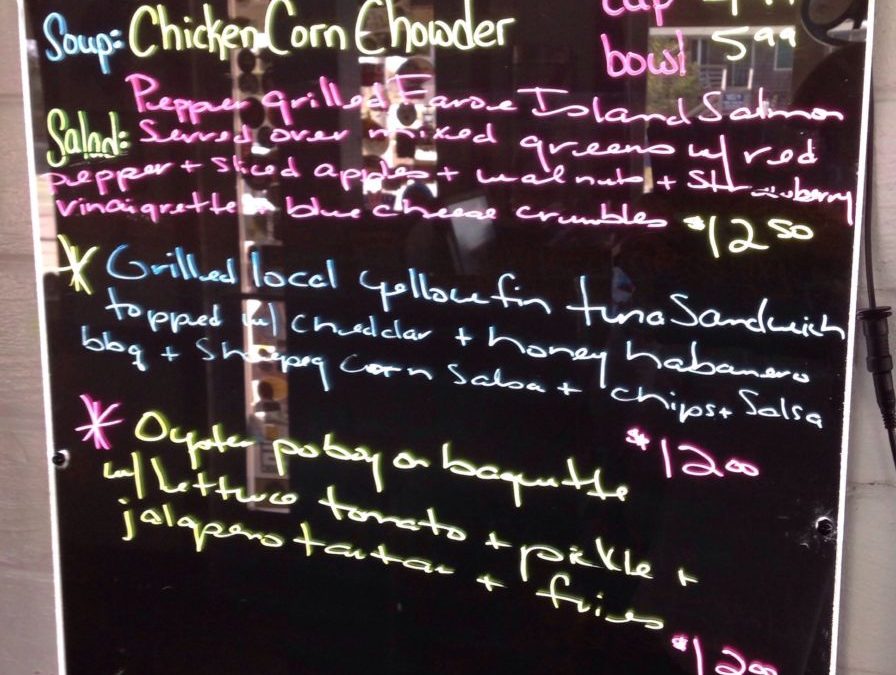 Soup: Chicken Corn Chowder
cup 4.99
bowl 5.99
Salad: Pepper grilled Faroe Island Salmon
Served over mixed greens w/ red
pepper + sliced apples + walnuts + Strawberry
vinaigrette + blue cheese crumbles $12.50
* Grilled local yellowfin tuna Sandwich
topped w/ cheddar + honey habanero
bbq + Shoepeg Corn Salsa + chips + Salsa
$12.00
* Oyster poboy on baguette
w/ lettuce tomato + pickle +
jalapeno tartar + fries
$12.00